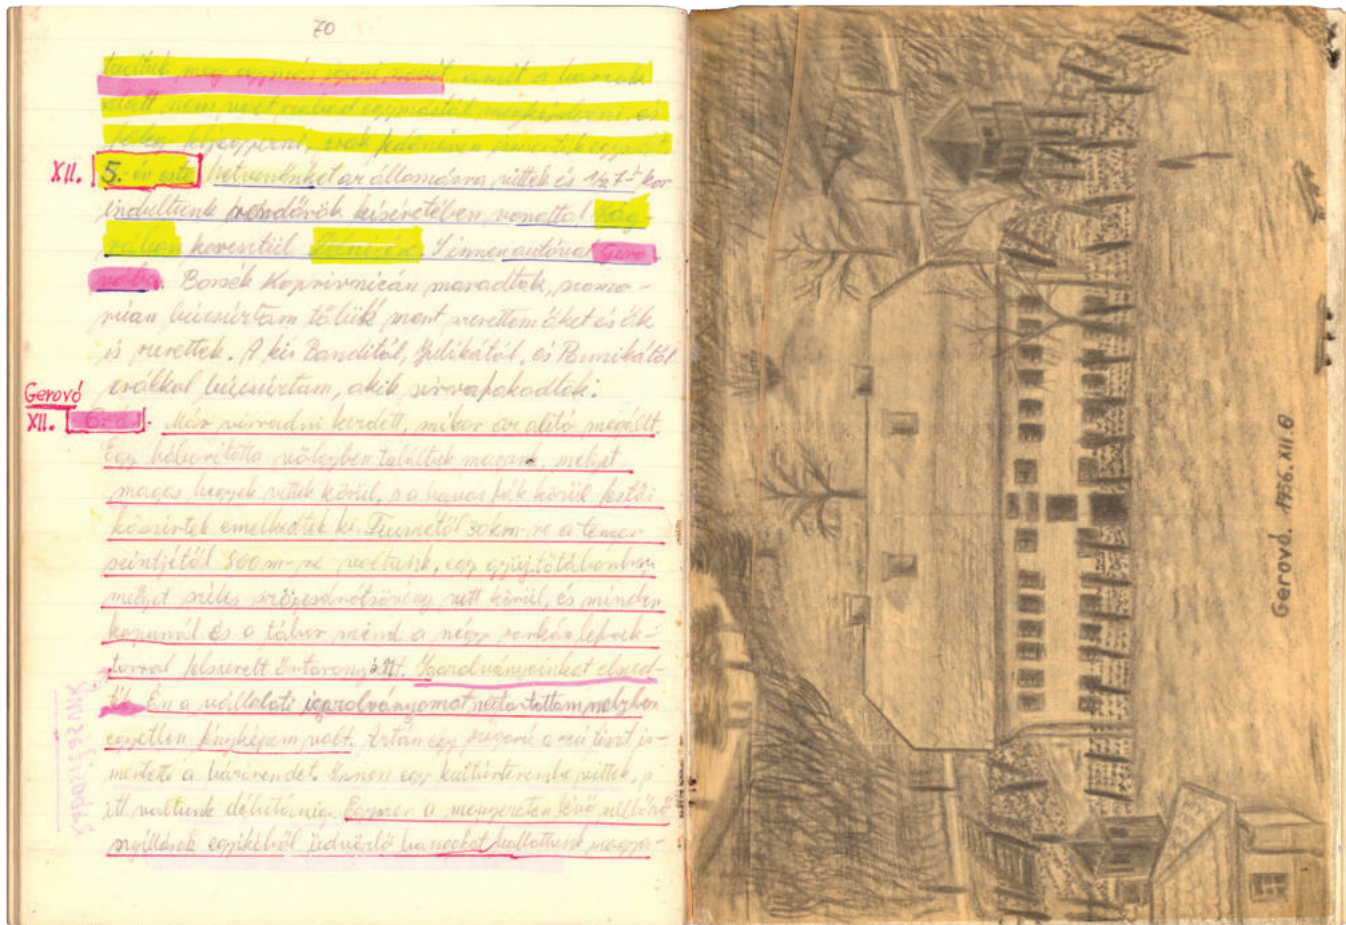 70
tudtuk meg egymás igazi nevét, amit a harcok
alatt nem volt szabad egymástól megkérdezni, és
csak fedőnéven ismertük egymást
XII. 5.-én este hetvenünket az állomásra vittek és 1/2 7-kor
indultunk rendőrök kíséretében vonattal Zág-
rábon keresztül Delnicére. S innen autóval Gero-
vóba. Bosék Koprivnicán maradtak, szomo-
rúan búcsúztam tőlük mert szerettem őket és ők
is szerettek. A kis Banditól, Julikától, és
csókkal búcsúztam, akik sírva fakadtak.
Gerovó
XII. 6-án. Már virradni kezdett, mikor az autó megállt.
Egy hóborította völgyben találtuk magunk, melyet
magas hegyek vettek körül, s a havas fák közül festői
kőszirtek emelkedtek ki. Fiumétől 30 km-re a tenger
szintjétől 800 m-re voltunk, egy gyűjtőtáborban
melyet széles szögesdrótsövény vett körül, és minden
kapunál és a tábor mind a négy sarkán reflek-
torral felszerelt őrtorony állt. Igazolványainkat elszed-
ték. Én a vállalati igazolványomat visszatartottam, melyben
egyetlen fényképem volt. Aztán egy tiszt is-
mertette a házirendet. Innen egy kultúrterembe vittek, s
itt voltunk délutánig. Egyszer a mennyezeten lévő szellőző
nyílások egyikéből üdvözlő hangokat hallottunk magya-
Gerovó. 1956. XII. 6